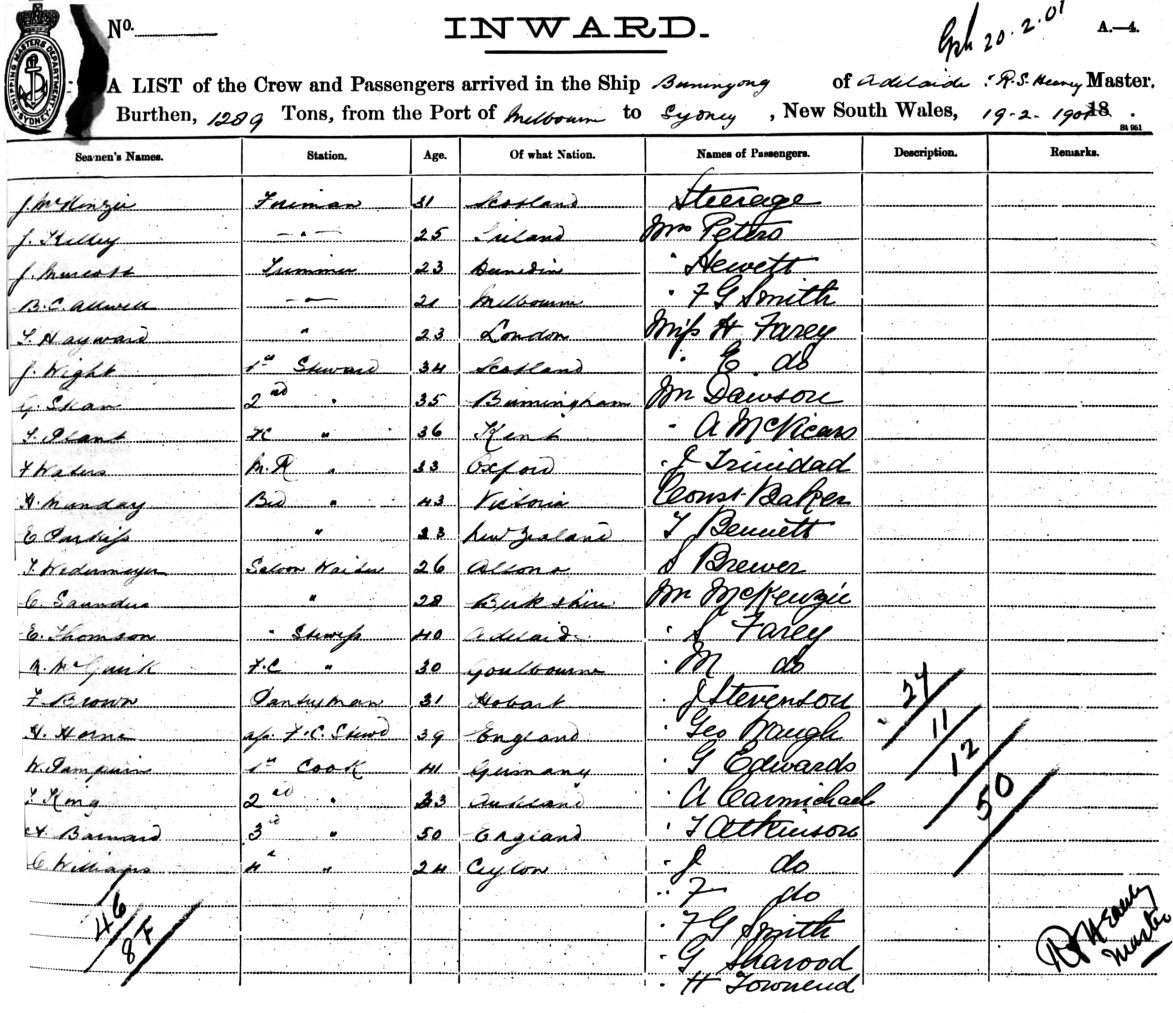 No.
INWARD.
Gph 20.2.01
A.—4.
SHIPPING MASTERS DEPARTMENT SYDNEY
A LIST of the Crew and Passengers arrived in the Ship Buninyong of Adelaide R.S. Master.
Burthen, 1289 Tons, from the Port of Melbourn to Sydney, New South Wales, 19-2-1901 18
Seamen's Names. Station. Age. Of what Nation. Names of Passengers. Description. Remarks.
J. McKenzie Foriman 31 Scotland Steerage
J. Kelley —"— 25 Irland Mrs Peters
J. Trimmer 23 Dunedin " Hewett
B. C. —"— 21 Melbourn " F G Smith
T. Hayward " 23 London Miss H Farey
J. Wight 1st Steward 34 Scotland " E do
G. Shaw 2nd " 35 Birmingham Mr Dawson
T. Plant " 36 Kent " A McVicars
F Waters " 33 Oxford " J Trinidad
H. Munday Bed " 43 Victoria Const Baker
E " 23 New Zealand T Bennett
Saloon Waiter 26 Altona S Brewer
C. Saunders " 28 Berkshire Mr McKenzie
E. Thomson " Stewess 40 Adelaid " S Farey
F.C " 30 Goulbourne " M do
F Brown Pantryman 31 Hobart " J Stevenson
H. Horne F.C. Stewd 39 England " Geo Waugh
W. 1st Cook 41 Germany " G Edwards
T. King 2nd " 33 Auckland " A Carmichael
A. Barnard 3rd " 50 England " T Atkinson
C Williams 4th " 24 Ceylon " J do
" F do
" F G Smith
" G Sharood
" H Townend
46
8 F
24
11
12
50
Master